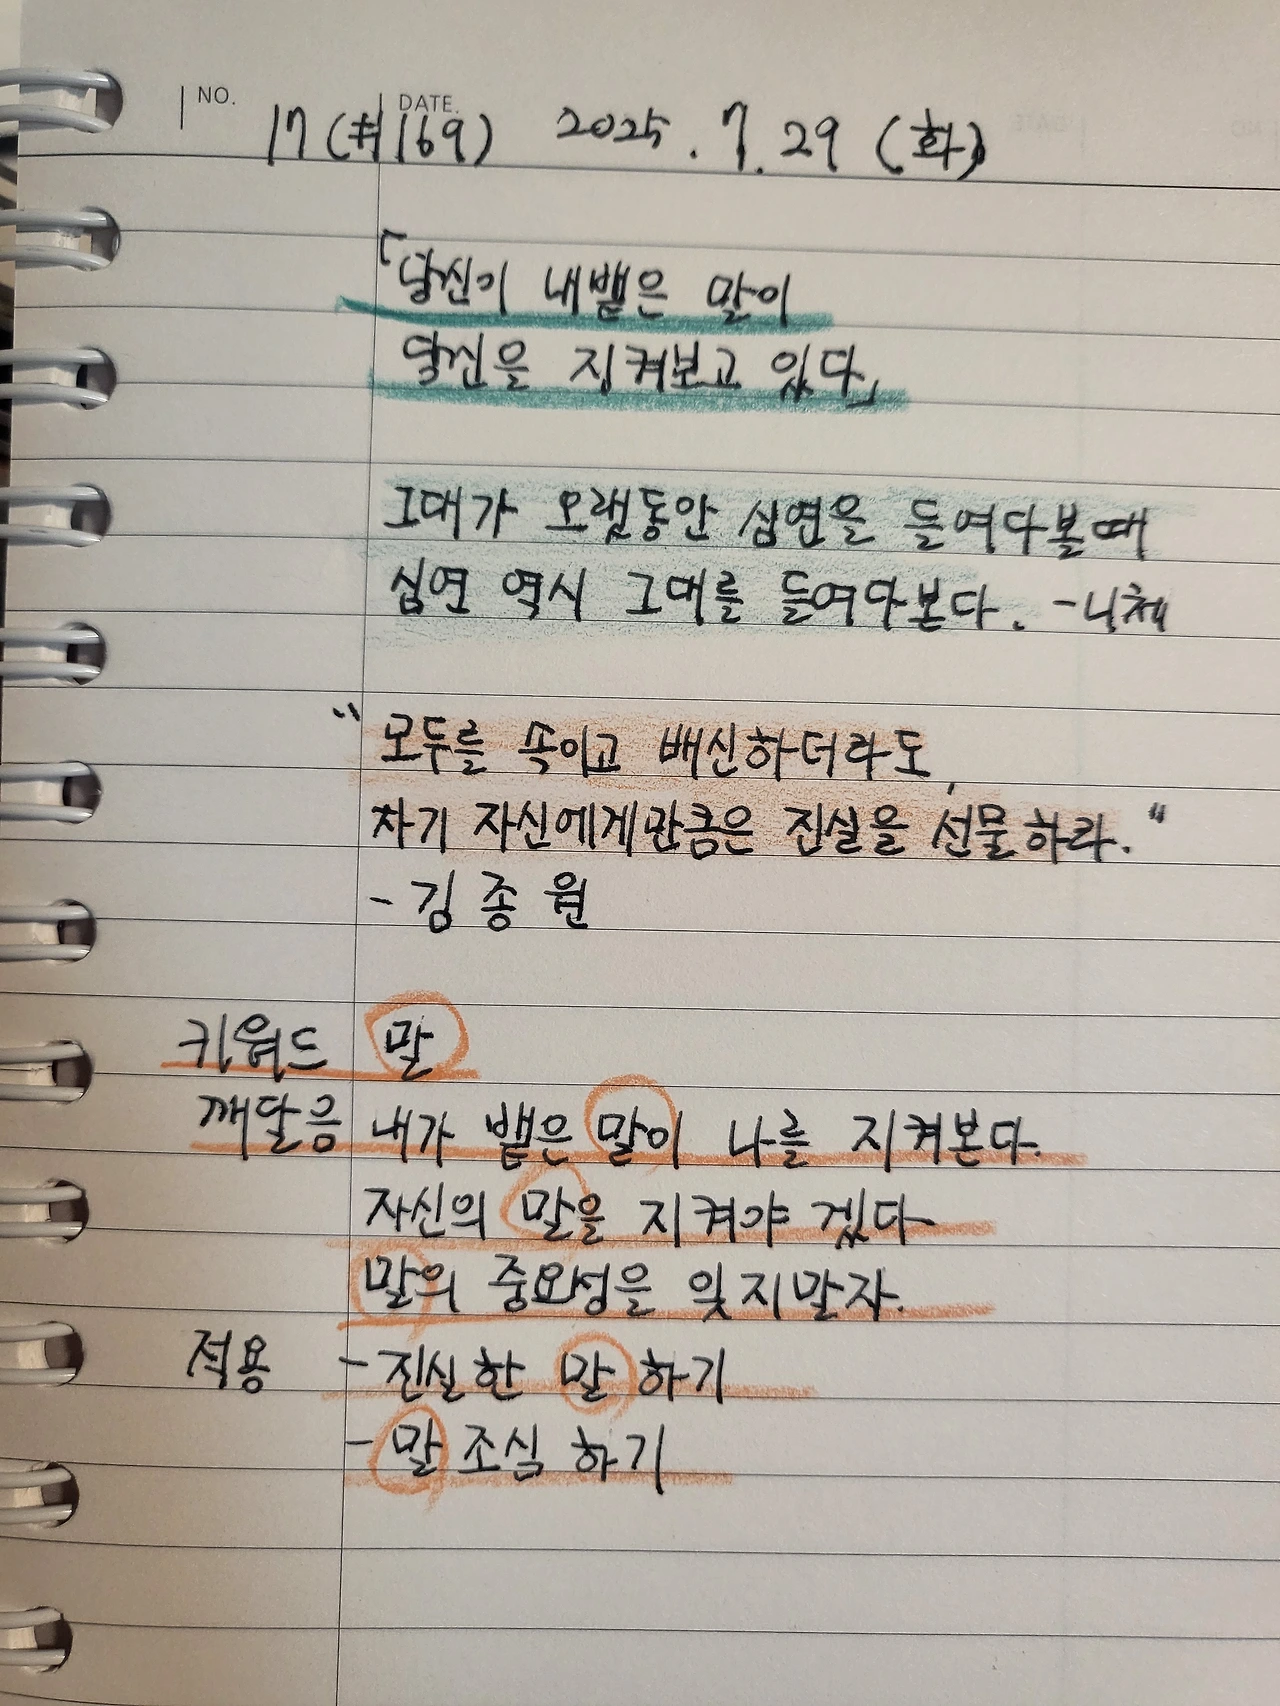 NO. DATE.
17 (#169) 2025. 7. 29 (화)
「당신이 내뱉은 말이
당신을 지켜보고 있다」
그대가 오랫동안 심연을 들여다볼때
심연 역시 그대를 들여다본다. -니체
"모두를 속이고 배신하더라도,
자기 자신에게만큼은 진실을 선물하라."
- 김종원
키워드 말
깨달음 내가 뱉은 말이 나를 지켜본다.
자신의 말을 지켜야 겠다
말의 중요성을 잊지말자.
적용 - 진실한 말하기
- 말 조심 하기